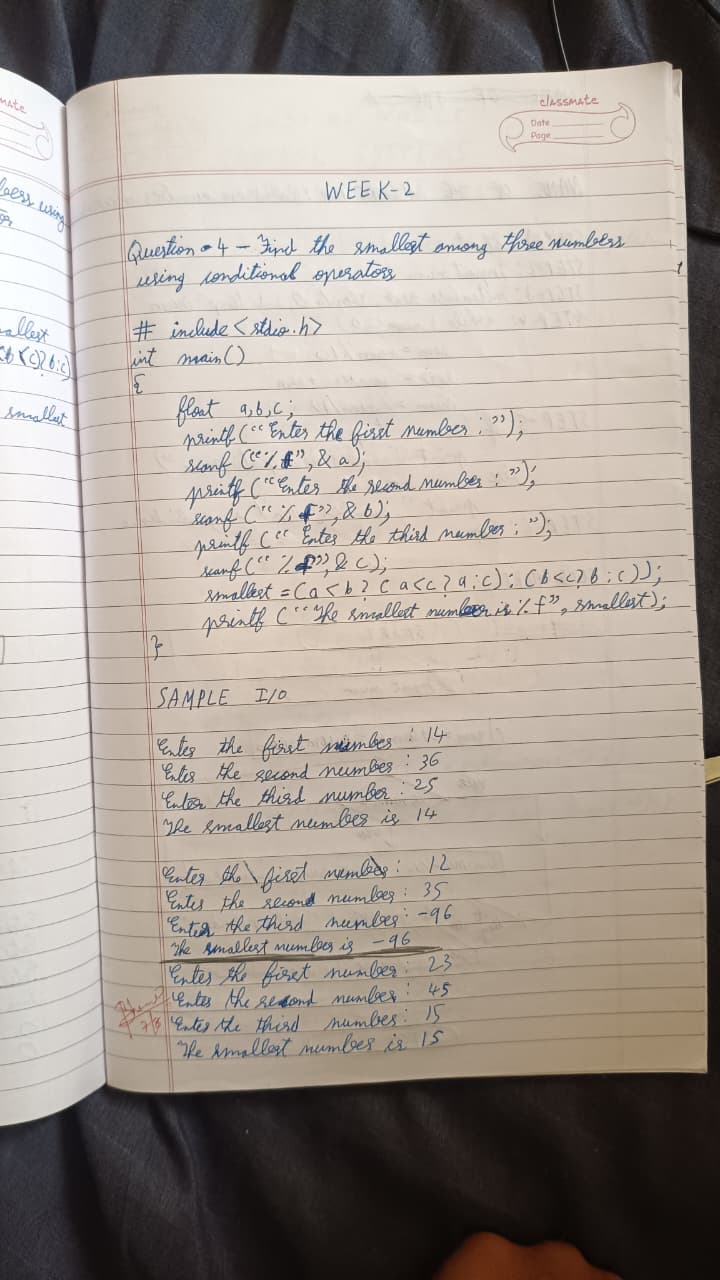 classmate
Date
Page
WEEK-2
Question - 4 - Find the smallest among three numbers
using conditional operators
# include <stdio.h>
int main()
{
float a,b,c;
printf ("Enter the first number : ");
scanf ("%f", & a);
printf ("Enter the second number : ");
scanf ("%f", & b);
printf (" Enter the third number : ");
scanf (" %f", & c);
smallest = (a<b? (a<c? a:c) : (b<c? b:c));
printf ("The smallest number is %f", smallest);
}
SAMPLE I/O
Enter the first number : 14
Enter the second number : 36
Enter the third number : 25
The smallest number is 14
Enter the first number : 12
Enter the second number : 35
Enter the third number : -96
The smallest number is -96
Enter the first number : 23
Enter the second number : 45
Enter the third number : 15
The smallest number is 15
using
smallest
(b<c)? b:c)
smallest